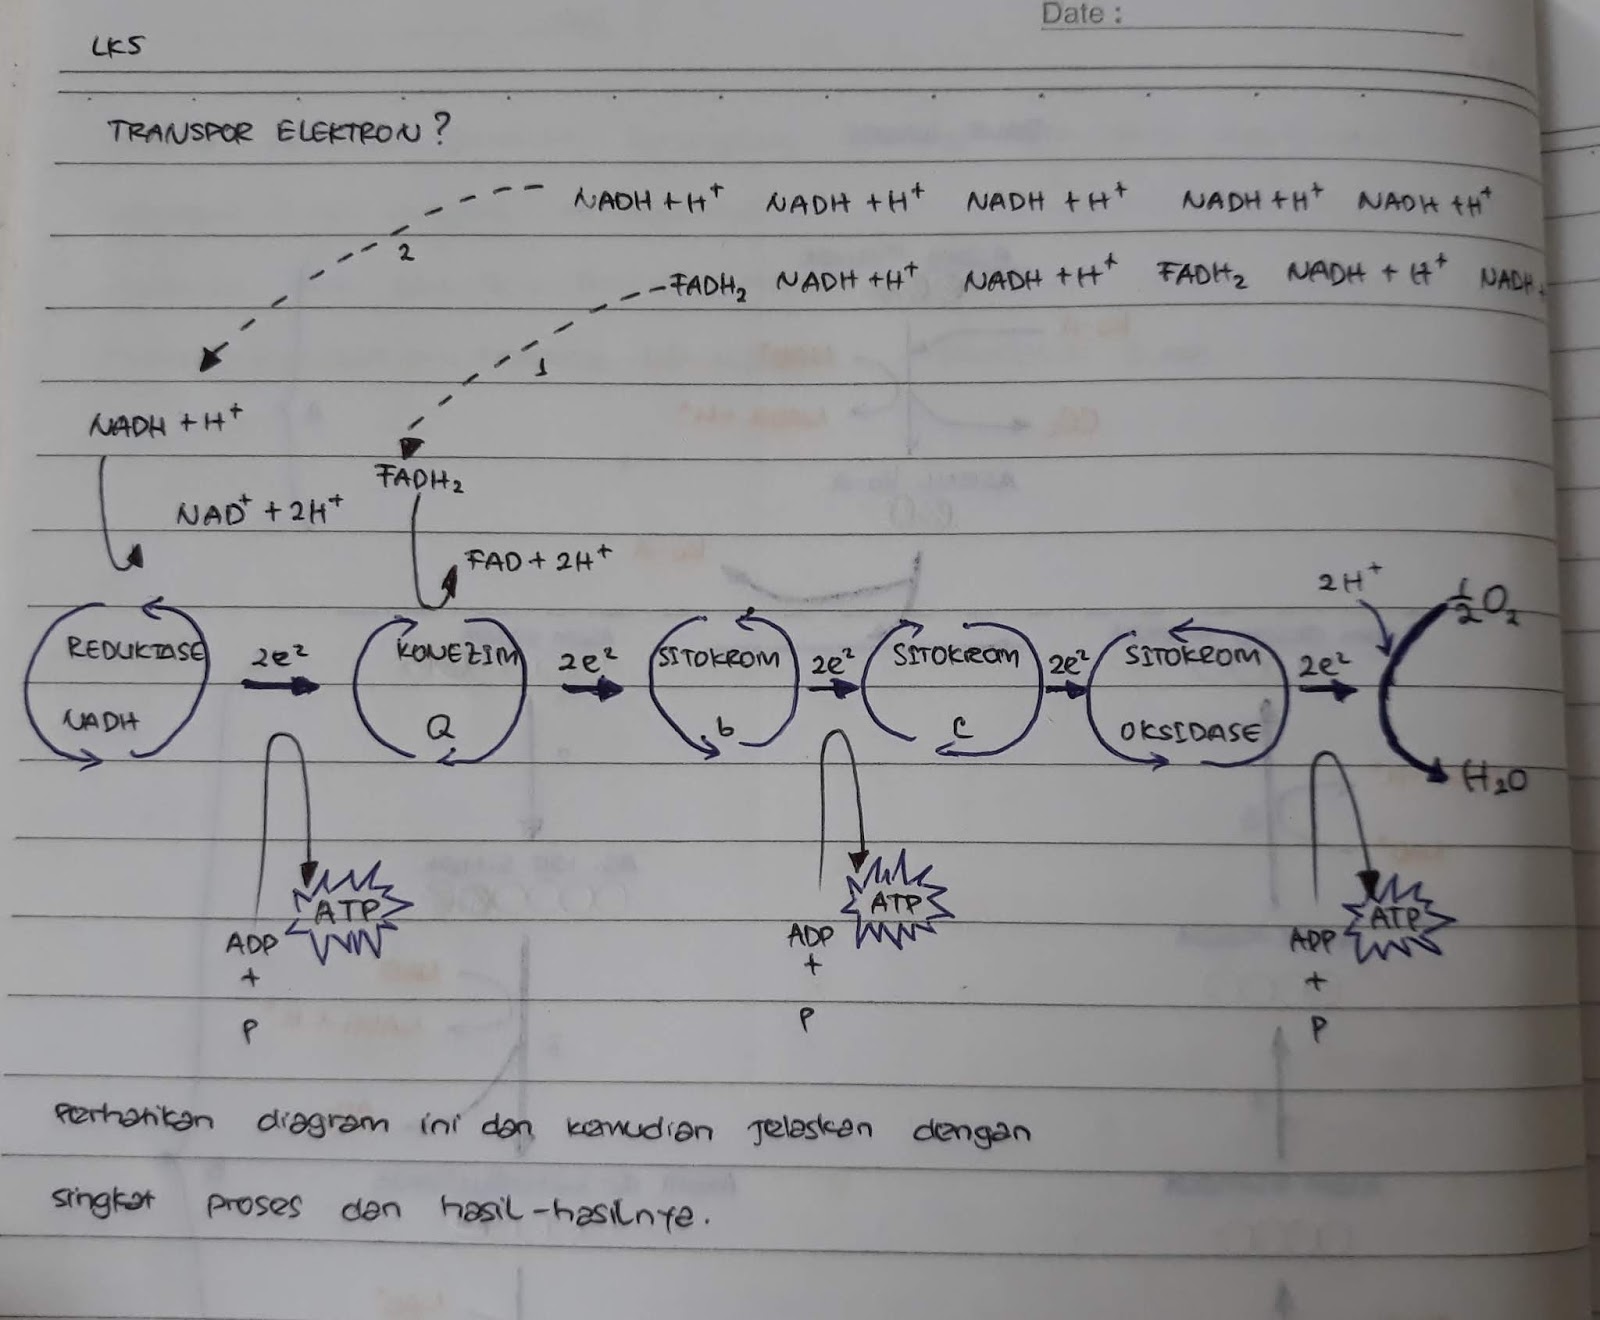 Date :
LKS
TRANSPOR ELEKTRON?
NADH + H⁺ NADH + H⁺ NADH + H⁺ NADH + H⁺ NADH + H⁺
2
FADH₂ NADH + H⁺ NADH + H⁺ FADH₂ NADH + H⁺ NADH +
1
NADH + H⁺
FADH₂
NAD⁺ + 2H⁺
FAD + 2H⁺
2H⁺
½O₂
REDUKTASE NADH
2e²
KONEZIM Q
2e²
SITOKROM b
2e²
SITOKROM C
2e²
SITOKROM OKSIDASE
2e²
H₂O
ATP ATP ATP
ADP ADP ADP
+ + +
P P P
Perhatikan diagram ini dan kemudian jelaskan dengan
singkat proses dan hasil-hasilnya.